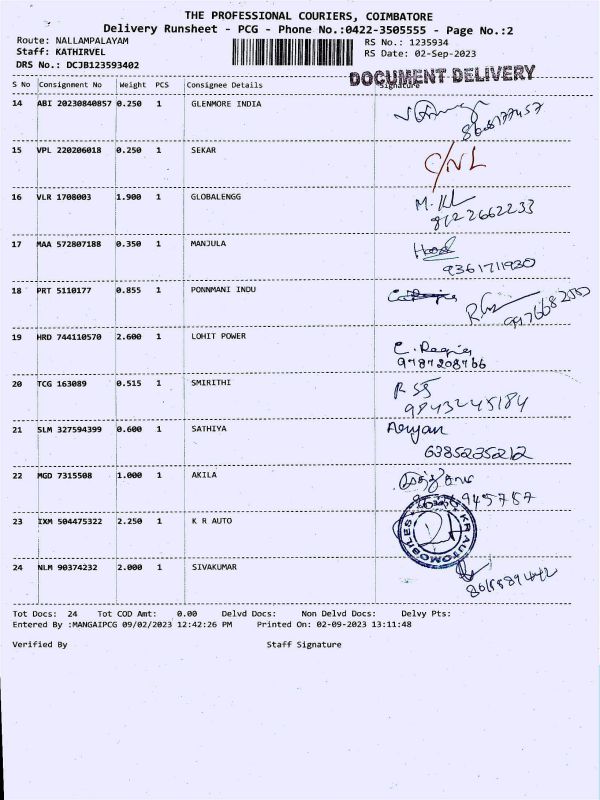 THE PROFESSIONAL COURIERS, COIMBATORE
Delivery Runsheet - PCG - Phone No.:0422-3505555 - Page No.:2
Route: NALLAMPALAYAM RS No.: 1235934
Staff: KATHIRVEL RS Date: 02-Sep-2023
DRS No.: DCJB123593402
DOCUMENT DELIVERY
S No Consignment No Weight PCS Consignee Details Signature
14 ABI 20230840857 0.250 1 GLENMORE INDIA
15 VPL 220206018 0.250 1 SEKAR C/NL
16 VLR 1708003 1.900 1 GLOBALENGG M. KL
17 MAA 572807188 0.350 1 MANJULA
9361711930
18 PRT 5110177 0.855 1 PONNMANI INDU
19 HRD 744110570 2.600 1 LOHIT POWER
9787208766
20 TCG 163089 0.515 1 SMIRITHI
9843245184
21 SLM 327594399 0.600 1 SATHIYA Aeryan
6385235212
22 MGD 7315508 1.000 1 AKILA
23 IXM 504475322 2.250 1 K R AUTO
K R AUTOMOBILES
24 NLM 90374232 2.000 1 SIVAKUMAR
Tot Docs: 24 Tot COD Amt: 0.00 Delvd Docs: Non Delvd Docs: Delvy Pts:
Entered By :MANGAIPCG 09/02/2023 12:42:26 PM Printed On: 02-09-2023 13:11:48
Verified By Staff Signature